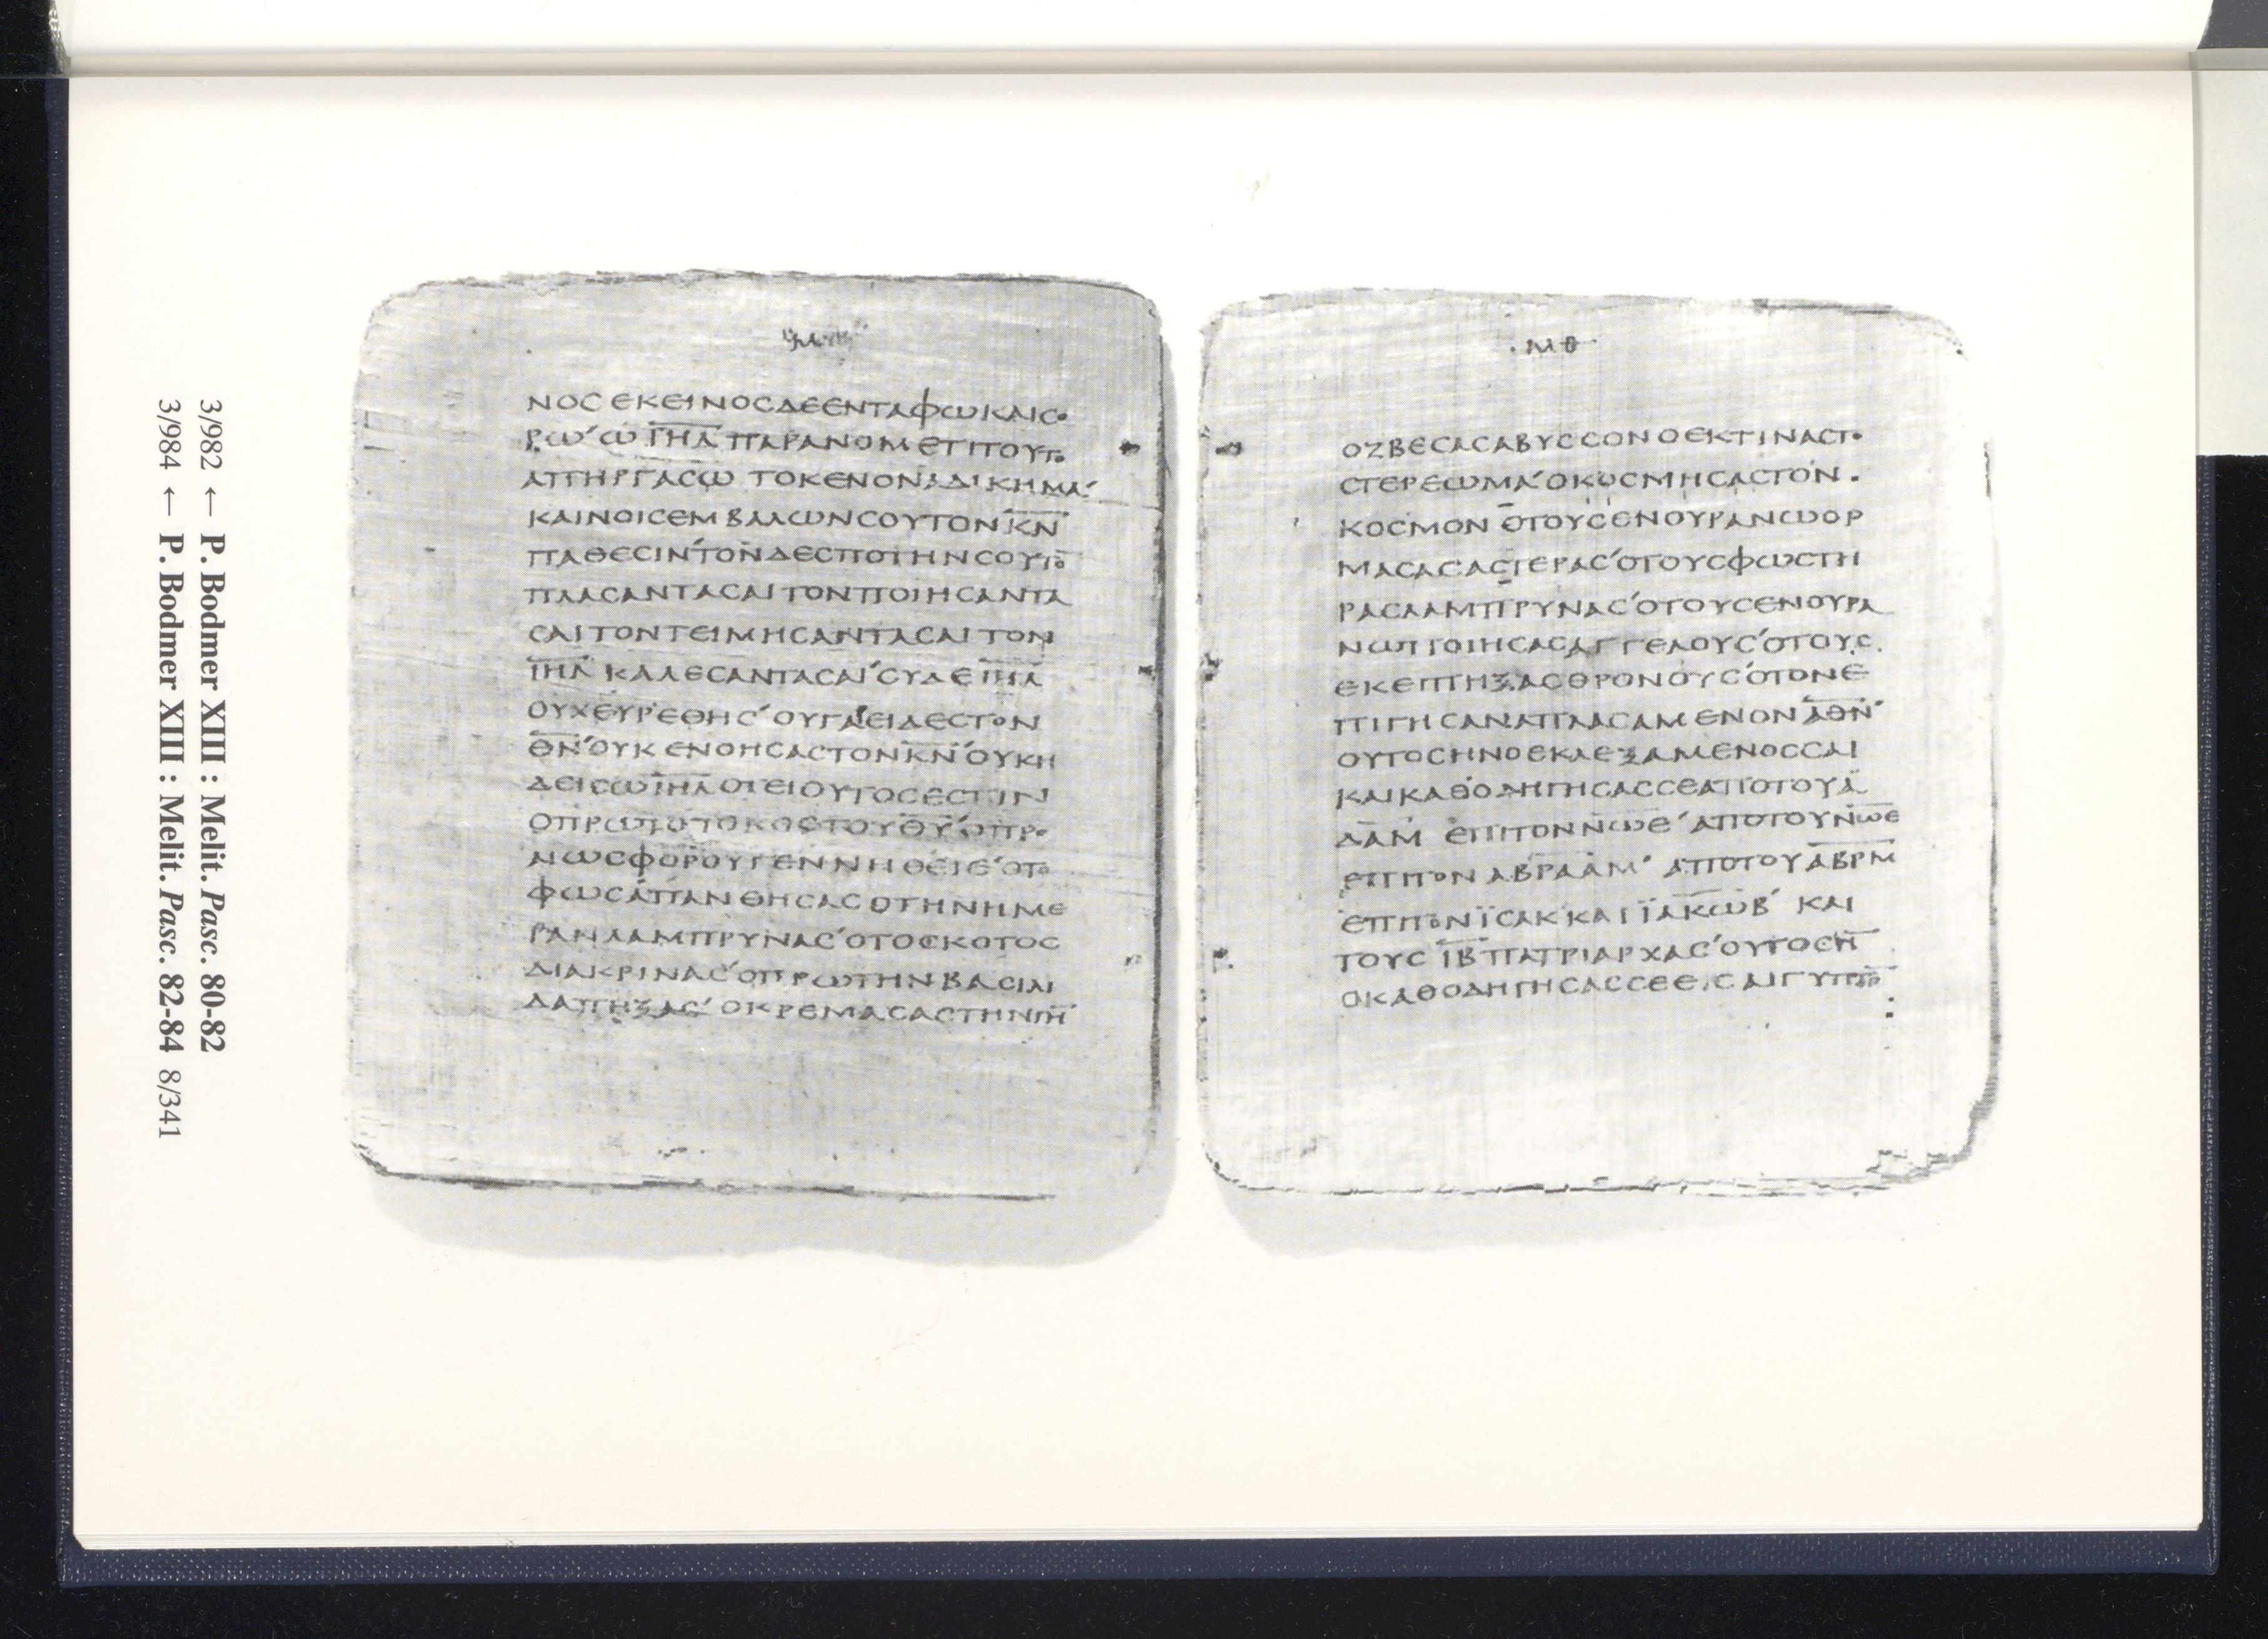 3/982 ← P. Bodmer XIII : Melit. Pasc. 80-82
3/984 ← P. Bodmer XIII : Melit. Pasc. 82-84 8/341
ΝΟϹ ΕΚΕΙΝΟϹΔΕΕΝΤΑΦΩΚΑΙϹΟ
ΡΩ ́Ω Ι̅Η̅Λ̅ ΠΑΡΑΝΟΜΕΤΙΤΟΥΤΟ
ΑΠΗΡΓΑϹΩ ΤΟΚΕΝΟΝΑΔΙΚΗΜΑ ́
ΚΑΙΝΟΙϹΕΜΒΑΛΩΝϹΟΥΤΟΝΚ̅Ν̅
ΠΑΘΕϹΙΝ ́ΤΟΝΔΕϹΠΟΤΗΝϹΟΥΤΟ
ΠΛΑϹΑΝΤΑϹΑΙΤΟΝΠΟΙΗϹΑΝΤΑ
ϹΑΙΤΟΝΤΕΙΜΗϹΑΝΤΑϹΑΙΤΟΝ
Ι̅Η̅Λ̅ ΚΑΛΕϹΑΝΤΑϹΑΙ ́ϹΥΔΕ Ι̅Η̅Λ̅
ΟΥΧΕΥΡΕΘΗϹ ́ ΟΥΓΑΕΙΔΕϹΤΟΝ
Θ̅Ν̅ ́ΟΥΚ ΕΝΟΗϹΑϹΤΟΝΚ̅Ν̅ ́ΟΥΚΗ
ΔΕΙϹΩΙ̅Η̅Λ̅ΟΤΕΙΟΥΤΟϹΕϹΤΙΝ
ΟΠΡΩΤΟΤΟΚΟϹΤΟΥΘ̅Υ̅ ́ΟΠΡΟ
ΑΝΩϹΦΟΡΟΥΓΕΝΝΗΘΕΙϹ ́ΟΤΟ
ΦΩϹΑΠΑΝΘΗϹΑϹΟΤΗΝΗΜΕ
ΡΑΝΛΑΜΠΡΥΝΑϹ ́ΟΤΟϹΚΟΤΟϹ
ΔΙΑΚΡΙΝΑϹ ́ΟΠΡΩΤΗΝΒΑϹΙΛΙ
ΔΑΠΗΞΑϹ ́ ΟΚΡΕΜΑϹΑϹΤΗΝΓΗ
ΜΘ
ΟΖΒΕϹΑϹΑΒΥϹϹΟΝΟΕΚΤΙΝΑϹΤΟ
ϹΤΕΡΕΩΜΑ ́ΟΚΟϹΜΗϹΑϹΤΟΝ
ΚΟϹΜΟΝ ΟΤΟΥϹΕΝΟΥΡΑΝΩΟΡ
ΜΑϹΑϹΑϹΤΕΡΑϹ ́ΟΤΟΥϹΦΩϹΤΗ
ΡΑϹΛΑΜΠΡΥΝΑϹ ́ΟΤΟΥϹΕΝΟΥΡΑ
ΝΩΠΟΙΗϹΑϹΑΓΓΕΛΟΥϹ ́ΟΤΟΥϹ
ΕΚΕΠΗΞΑϹΘΡΟΝΟΥϹ ́ΟΤΟΝΕ
ΠΙΓΗϹΑΝΑΠΛΑϹΑΜΕΝΟΝΑ̅Θ̅Ν̅ ́
ΟΥΤΟϹΗΝΟΕΚΛΕΞΑΜΕΝΟϹϹΑΙ
ΚΑΙΚΑΘΟΔΗΓΗϹΑϹϹΕΑΠΟΤΟΥΑ
ΔΑΜ ΕΠΙΤΟΝΝ̅Ω̅Ε̅ ́ΑΠΟΤΟΥΝ̅Ω̅Ε̅
ΕΠΙΤΟΝ ΑΒΡΑΑΜ ́ ΑΠΟΤΟΥΑ̅Β̅Ρ̅Μ̅
ΕΠΙΤΟΝΪϹΑΚ ΚΑΙ ΪΑΚΩΒ ́ ΚΑΙ
ΤΟΥϹ Ι̅Β̅ ΠΑΤΡΙΑΡΧΑϹ ́ΟΥΤΟϹΗ̅
ΟΚΑΘΟΔΗΓΗϹΑϹϹΕΕΙϹΑΙΓΥΠΤΟ̅